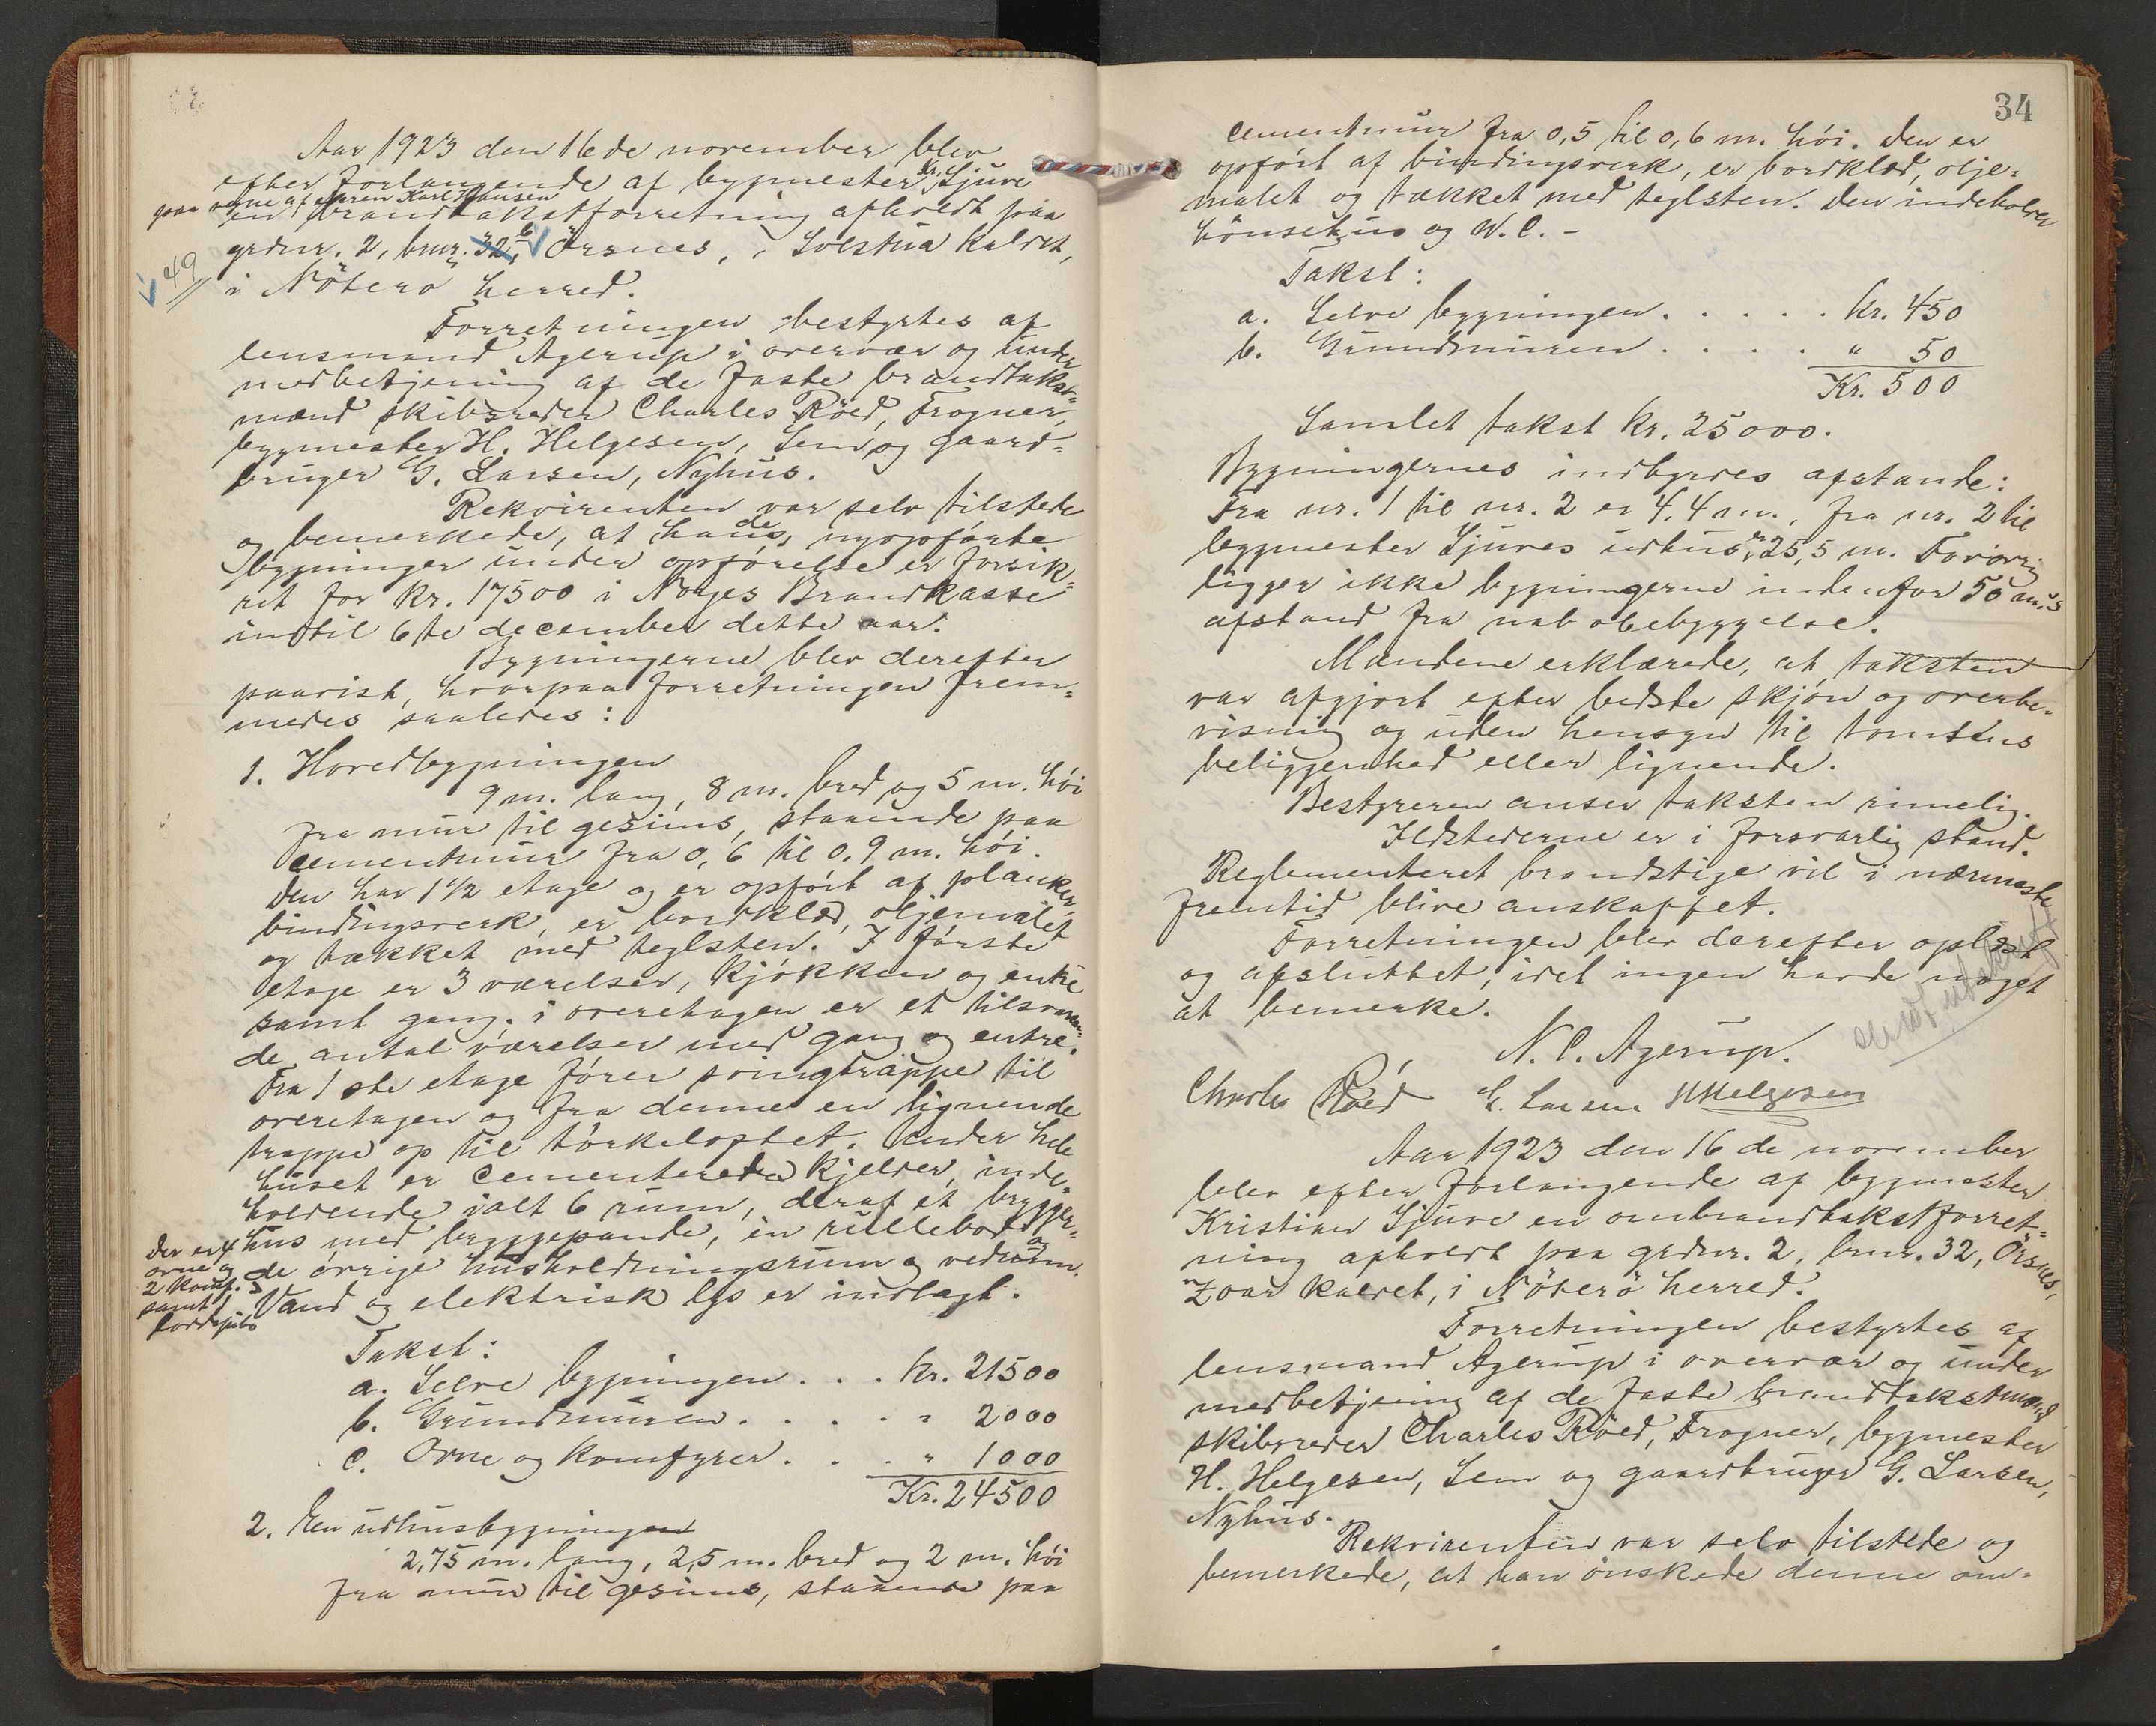 Aar 1923 den 16de november blev
efter forlangende af bygmester Kr. Sjuve
paa vegne af eieren Karl Hansen
en brandtakstforretning afholdt paa
grdnr. 2, brnr. 32, 6 Örsnes, " Solstua kaldet,
49
i Nöterö herred.
Forretningen bestyrtes af
lensmand Agerup i overvær og under
medbetjening af de faste brandtakst-
mænd skibsreder Charles Röed, Trogner,
bygmester H. Helgesen, Sem og gaard-
bruger G. Larsen, Nyhus.
Rekvirenten var selv tilstede
og bemerkede, at hans de nyopförte
bygninger under opförelse er forsik-
ret for kr. 17500 i Norges Brandkasse
indtil 6te december dette aar.
Bygningerne blev derefter
paavist, hvorpaa forretningen frem-
medes saaledes:
1. Hovedbygningen
9 m. lang, 8 m. bred og 5 m. höi
fra mur til gesims, staaende paa
cementmur fra 0,6 til 0.9 m. höi.
Den har 1 1/2 etage og er opfört af planker,
bindingsverk, er bordklæd, oljemalet
og tækket med teglsten. I förste
etage er 3 værelser, kjökken og entre
samt gang. i overetagen er et tilsvaren-
de antal værelser med gang og entre.
Fra 1ste etage förer svingtrappe til
overetagen og fra denne en lignende
trappe op til törkeloftet. Under hele
huset er cementeret kjelder, inde-
holdende ialt 6 rum, deraf et brygger-
hus med bryggepande, en rullebod og
de övrige husholdningsrum og vedrum.
Der er 4
ovne og
2 komf.
samt 1
Vand og elektrisk lys er indlagt.
Takst:
a. Selve bygningen . . . Kr. 21500
b. Grundmuren . . . . " 2000
c. Ovne og komfyrer . . . " 1000
Kr. 24500
2. En udhusbygningen
2,75 m. lang, 2,5 m. bred og 2 m. höi
fra mur til gesims, staaende paa
34
cementmur fra 0,5 til 0,6 m. höi. Den er
opfört af bindingsverk, er bordklæd, olje-
malet og tækket med teglsten. Den indeholder
hönsehus og W.C. –
Takst:
a. Selve bygningen . . . . . Kr. 450
b. Grundmuren . . . . " 50
Kr. 500
Samlet takst kr. 25000.
Bygningernes indbyrdes afstande:
Fra nr. 1 til nr. 2 er 4,4 m., fra nr. 2 til
bygmester Sjuves udhus er 25,5 m. Forövrig
ligger ikke bygningerne indenfor 50 m.s
afstand fra nabobebyggelse.
Mændene erklærede, at taksten
var afgjort efter bedste skjön og overbe-
visning og uden hensyn til tomtens
beliggenhed eller lignende.
Bestyreren anser taksten rimelig.
Ildstederne er i forsvarlig stand.
Reglementeret brandstige vil i nærmeste
fremtid blive anskaffet.
Forretningen blev derefter oplæst
og afsluttet, idet ingen havde noget
at bemerke.
N. C. Agerup.
Charles Röed G. Larsen H Helgesen
Aar 1923 den 16de november
blev efter forlangende af bygmester
Kristian Sjuve en ombrandtakstforret-
ning afholdt paa grdnr. 2, brnr. 32, Örsnes,
"Zoar kaldet, i Nöterö herred.
Forretningen bestyrtes af
lensmand Agerup i overvær og under
medbetjening af de faste brandtakstmænd
skibsreder Charles Röed, Trogner, bygmester
H. Helgesen, Sem og gaardbruger G. Larsen,
Nyhus.
Rekvirenten var selv tilstede og
bemerkede, at han önskede denne om-